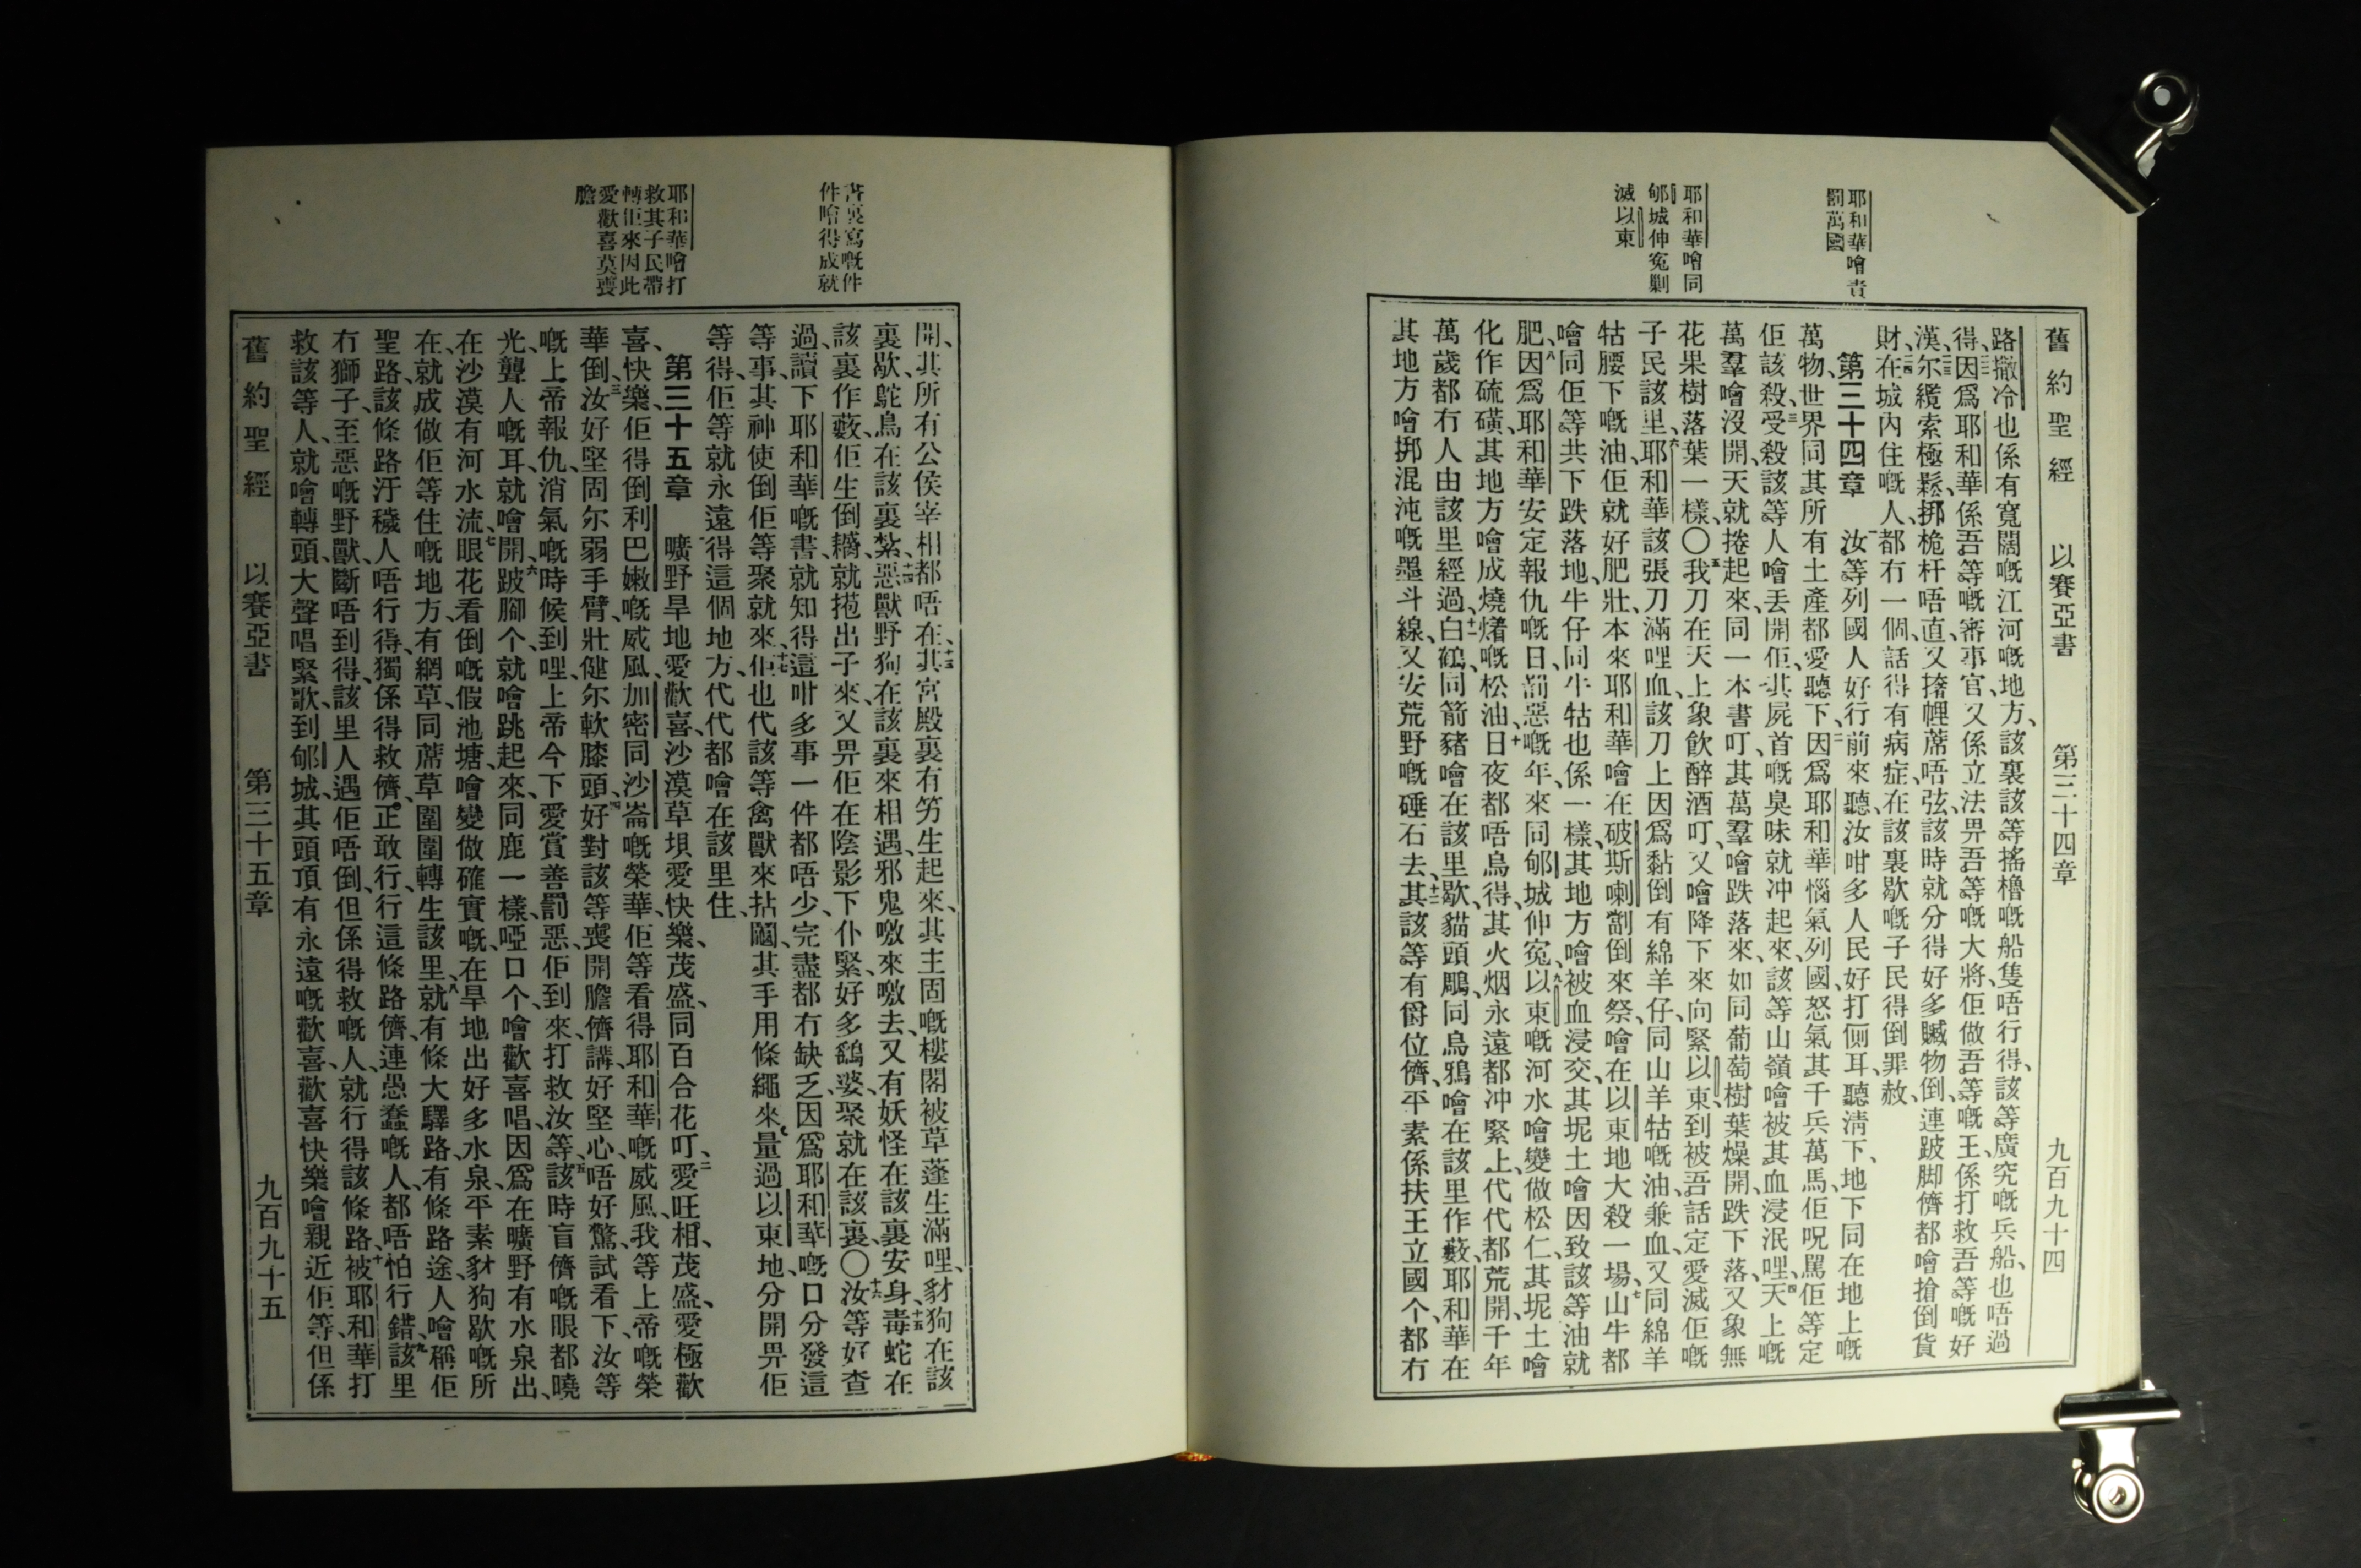 舊約聖經 以賽亞書 第三十四章 九百九十四
耶和華噲責
罰萬國
耶和華噲同
郇城伸冤剿
滅以東
路撒冷也係有寬闊嘅江河嘅地方、該裏該等搖櫓嘅船隻唔行得、該等廣究嘅兵船、也唔過
得、因爲耶和華係吾等嘅審事官、又係立法畀吾等嘅大將、佢做吾等嘅王、係打救吾等嘅好
漢、尔纜索極鬆、挷桅杆唔直、又㨋幔蓆唔弦、該時就分得好多贓物倒、連跛脚儕都噲搶倒貨
財、在城內住嘅人、都冇一個、話得有病症、在該裏歇嘅子民得倒罪赦、
第三十四章 汝等列國人好行前來聽、汝咁多人民好打側耳、聽淸下、地下同在地上嘅
萬物、世界同其所有土產都愛聽下、因爲耶和華惱氣列國、怒氣其千兵萬馬、佢呪罵佢等定
佢該殺、受殺該等人噲丟開佢、其屍首嘅臭味就冲起來、該等山嶺噲被其血浸泯哩、天上嘅
萬羣噲沒開、天就捲起來、同一本書叮、其萬羣噲跌落來、如同葡萄樹葉燥開、跌下落、又象無
花果樹落葉一樣、〇我刀在天上象飲醉酒叮、又噲降下來向緊以東、到被吾話定愛滅佢嘅
子民該里、耶和華該張刀滿哩血、該刀上因爲黏倒有綿羊仔、同山羊牯嘅油兼血、又同綿羊
牯腰下嘅油、佢就好肥壯、本來耶和華噲在破斯喇劏倒來祭、噲在以東地大殺一場、山牛都
噲同佢等共下跌落地、牛仔同牛牯也係一樣、其地方噲被血浸交、其坭土噲因致該等油就
肥、因爲耶和華安定報仇嘅日、罰惡嘅年、來同郇城伸冤、以東嘅河水噲變做松仁、其坭土噲
化作硫磺、其地方噲成燒㸆嘅松油、日夜都唔烏得、其火烟永遠都冲緊上、代代都荒開、千年
萬歲都冇人由該里經過、白鶴同箭豬噲在該里歇、貓頭鵰同烏鴉噲在該里作藪、耶和華在
其地方噲挷混沌嘅墨斗線、又安荒野嘅硾石去、其該等有爵位儕、平素係扶王立國个、都冇
書裏寫嘅件
件噲得成就
耶和華噲打
救其子民帶
轉佢來因此
愛歡喜莫喪
膽
開、其所有公侯宰相、都唔在、其宮殿裏有竻生起來、其主固嘅樓閣被草蓬生滿哩、豺狗在該
裏歇、鴕鳥在該裏紮、惡獸野狗在該裏來相遇、邪鬼噭來噭去、又有妖怪在該裏安身、毒蛇在
該裏作藪、佢生倒䎖就菢出子來、又畀佢在陰影下仆緊、好多鷂婆、聚就在該裏、〇汝等好查
過、讀下耶和華嘅書、就知得這咁多事一件都唔少、完盡都冇缺乏、因爲耶和華嘅口分發這
等事、其神使倒佢等聚就來、佢也代該等禽獸來拈鬮、其手用條繩來量過以東地、分開畀佢
等得、佢等就永遠得這個地方、代代都噲在該里住、
第三十五章 曠野旱地愛歡喜、沙漠草垻愛快樂、茂盛、同百合花叮、愛旺相、茂盛、愛極歡
喜快樂、佢得倒利巴嫩嘅威風、加密同沙崙嘅榮華、佢等看得耶和華嘅威風、我等上帝嘅榮
華倒、汝好堅固尔弱手臂、壯健尔軟膝頭、好對該等喪開膽儕講、好堅心、唔好驚、試看下、汝等
嘅上帝報仇、消氣嘅時候到哩、上帝今下愛賞善罰惡、佢到來、打救汝等、該時盲儕嘅眼都曉
光、聾人嘅耳、就噲開、跛腳个、就噲跳起來、同鹿一樣、啞口个、噲歡喜唱、因爲在曠野有水泉出、
在沙漠有河水流、眼花看倒嘅假池塘、噲變做確實嘅、在旱地出好多水泉、平素豺狗歇嘅所
在、就成做佢等住嘅地方、有綱草同蓆草圍圍轉生該里、就有條大驛路、有條路途、人噲稱佢
聖路、該條路汙穢人唔行得、獨係得救儕正敢行、行這條路儕、連愚蠢嘅人、都唔怕行錯、該里
冇獅子、至惡嘅野獸、斷唔到得、該里人遇佢唔倒、但係得救嘅人、就行得該條路、被耶和華打
救該等人、就噲轉頭、大聲唱緊歌、到郇城、其頭頂有永遠嘅歡喜、歡喜快樂噲親近佢等、但係
舊約聖經 以賽亞書 第三十五章 九百九十五